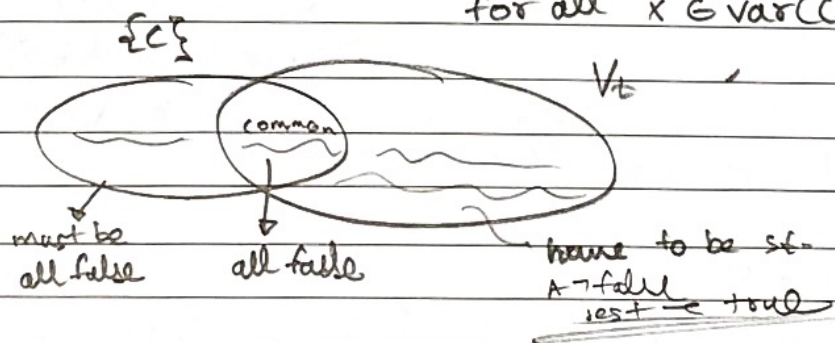 for all x ∈ var(C
{C}
V_t
common
must be
all false
all false
have to be st.
A → false
rest → true